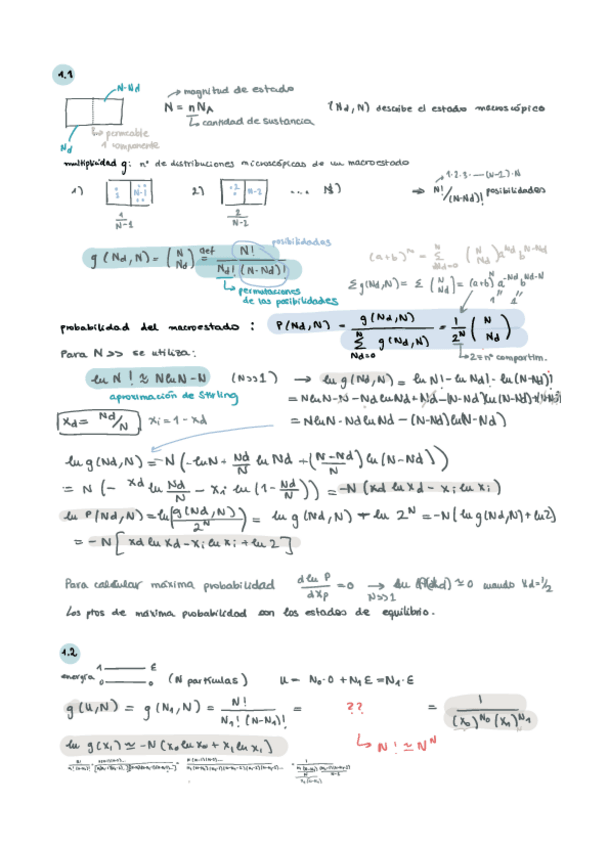 1.1
N-Nd
magnitud de estado
N = n NA
cantidad de sustancia
(Nd, N) describe el estado macroscópico
permeable
1 componente
Nd
multiplicidad g: nº de distribuciones microscópicas de un macroestado
1) 2) ... N)
1/N-1 2/N-2
1·2·3·—(N-1)·N
⇒ N!/(N-Nd)! posibilidades
posibilidades
g(Nd, N) = (N Nd) def= N!/Nd!(N-Nd)!
permutaciones
de las posibilidades
(a+b)^N = Σ Nd=0 N (N Nd) a^Nd b^N-Nd
Σg(Nd,N) = Σ (N Nd) = (a+b)^N a^-Nd b^Nd-N
probabilidad del macroestado: P(Nd,N) = g(Nd,N)/Σ Nd=0 N g(Nd,N) = 1/2^N (N Nd)
2=nº compartim.
Para N>> se utiliza:
ln N! ≈ N ln N - N (N>>1) → ln g(Nd,N) = ln N! - ln Nd! - ln(N-Nd)!
aproximación de Stirling
xd = Nd/N xi = 1 - xd
= N ln N - Nd ln Nd - (N-Nd) ln(N-Nd)
ln g(Nd,N) = -N (-ln N + Nd/N ln Nd + (N-Nd/N) ln(N-Nd))
= N (- xd ln Nd/N - xi ln (1 - Nd/N)) = -N (xd ln xd - xi ln xi)
ln P(Nd,N) = ln(g(Nd,N)/2^N) = ln g(Nd,N) + ln 2^N = -N(ln g(Nd,N) + ln2)
= -N [xd ln xd - xi ln xi + ln 2]
Para calcular máxima probabilidad d ln P/dxp = 0 → N>>1 ≈ 0 cuando xd = 1/2
Los ptos de máxima probabilidad son los estados de equilibrio.
1.2
energía 1 — ε
0 — 0
(N partículas) U = N0·0 + N1 ε = N1·ε
g(U,N) = g(N1,N) = N!/N1!(N-N1)! = ?? = 1/(x0)^N0 (x1)^N1
N! ≈ N^N
ln g(x1) ≈ -N (x0 ln x0 + x1 ln x1)